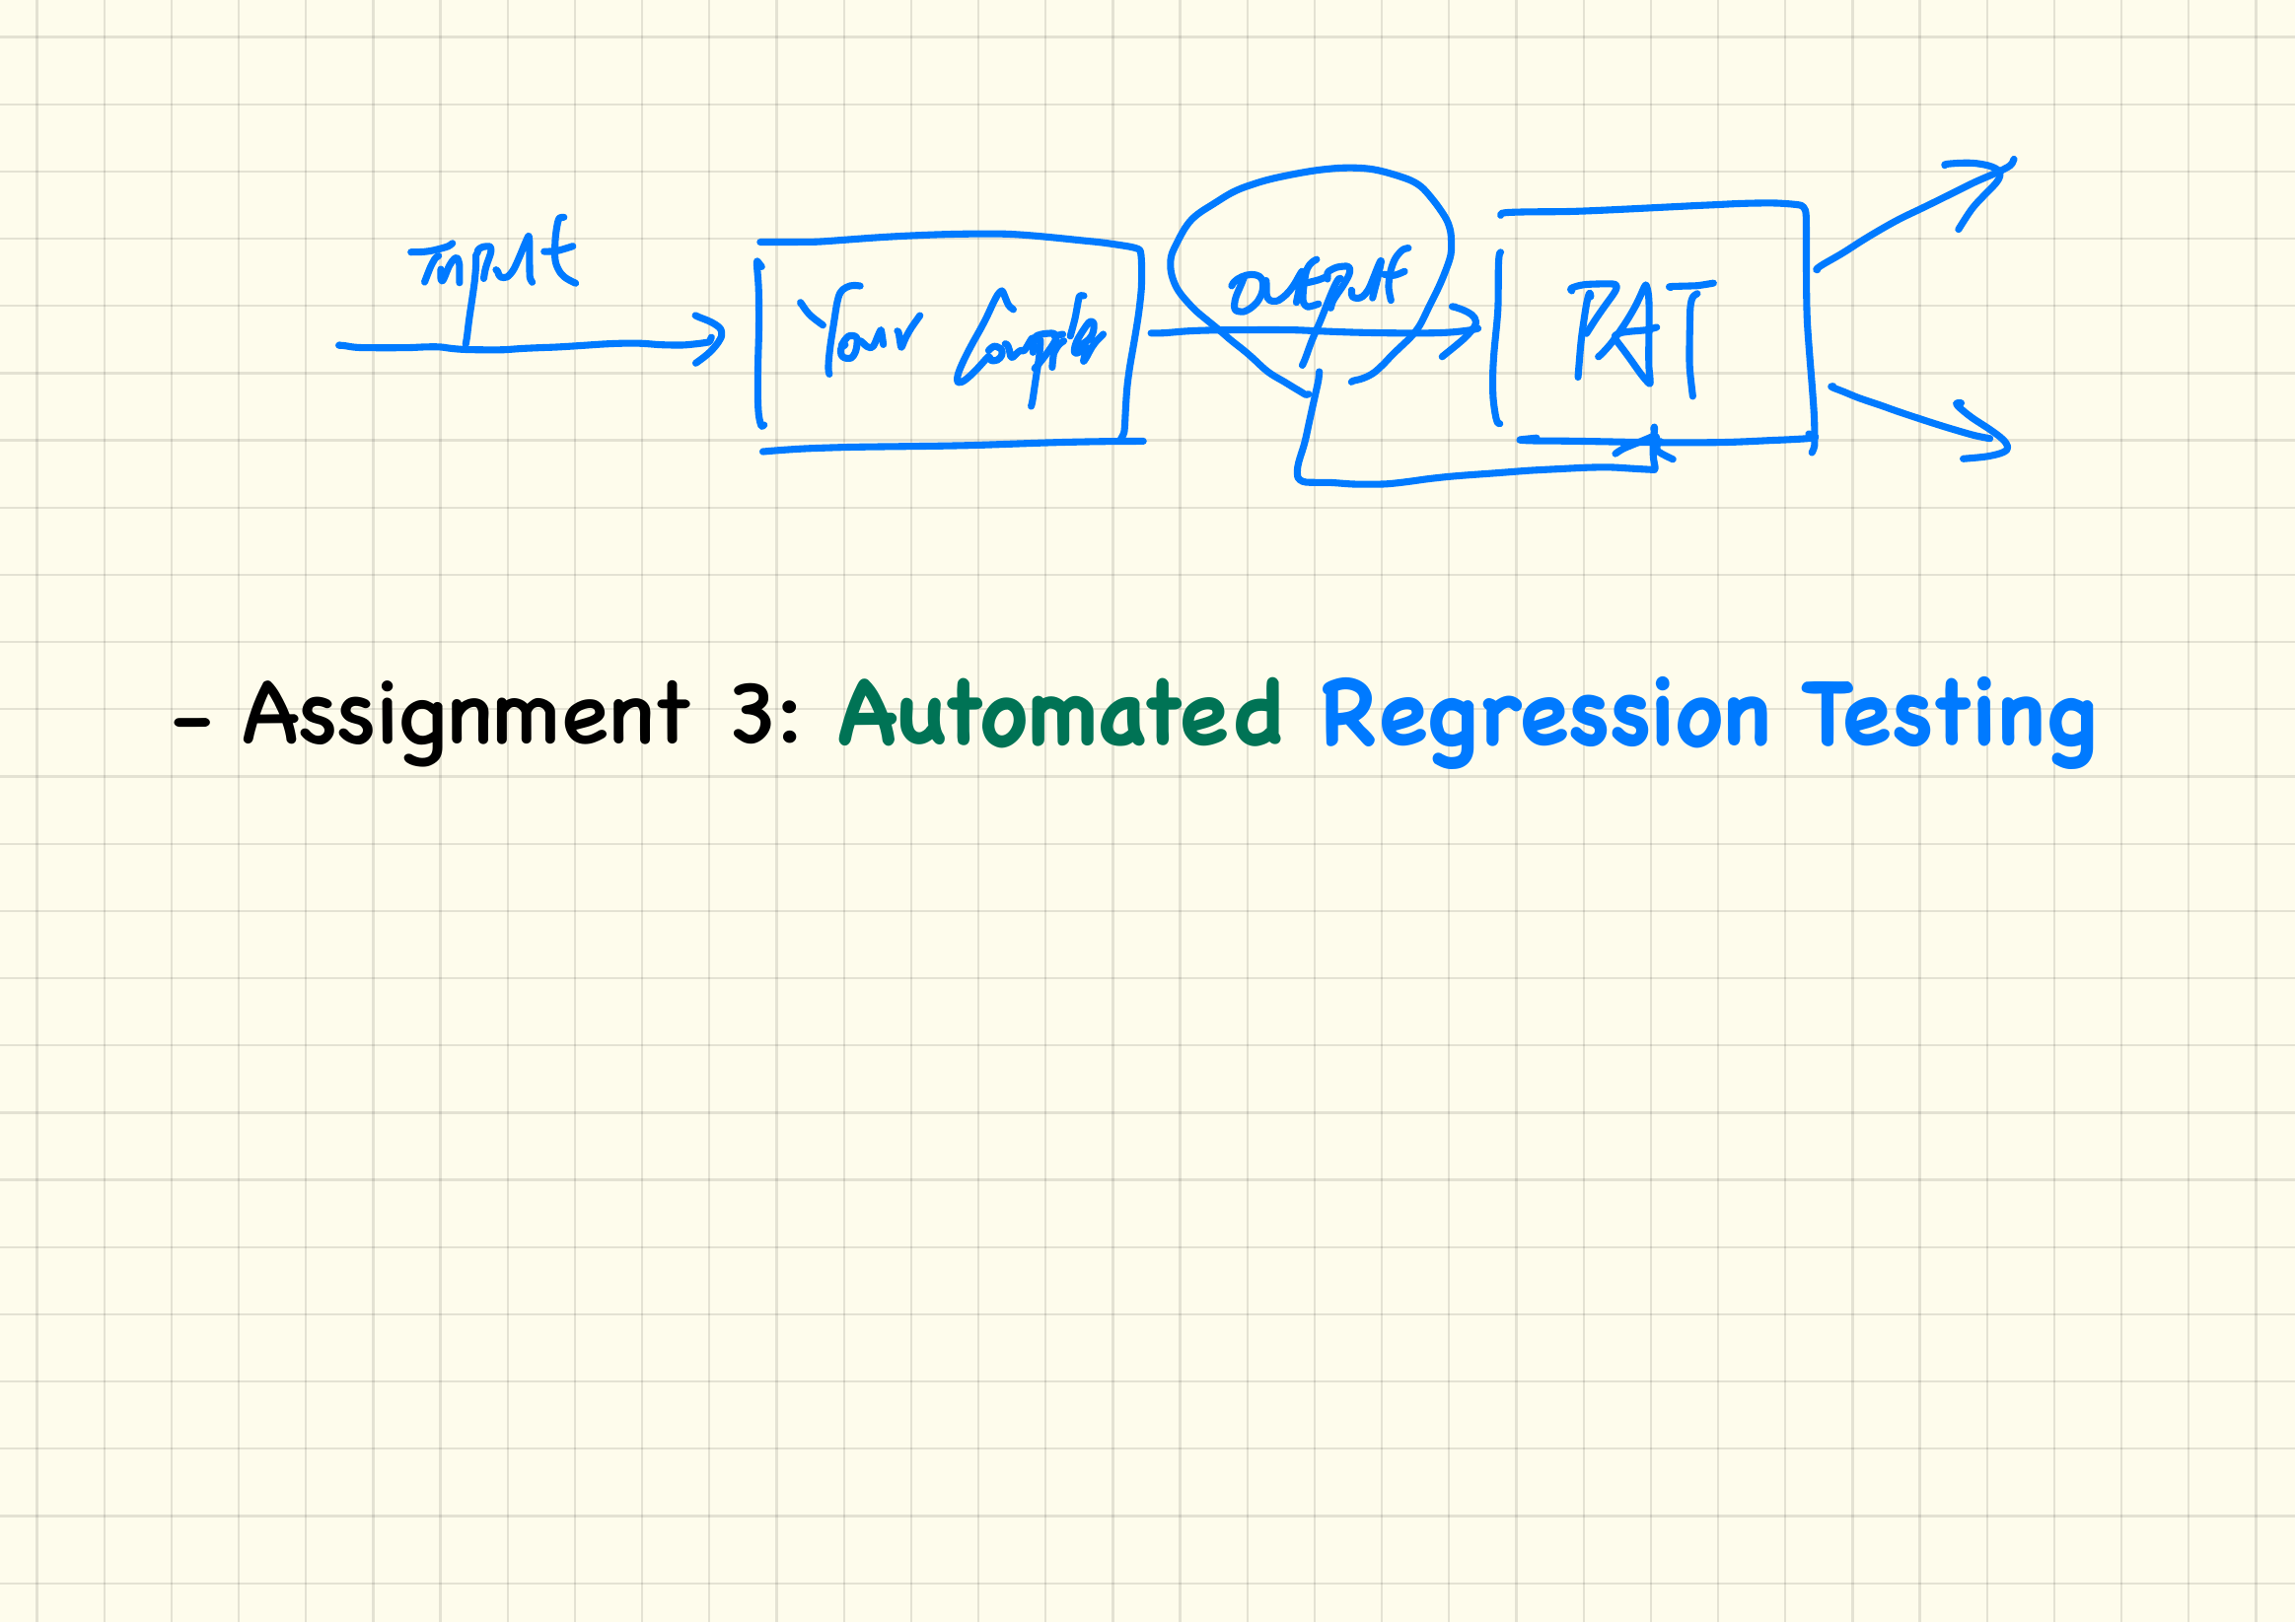 input
Your
output
- Assignment 3: Automated Regression Testing